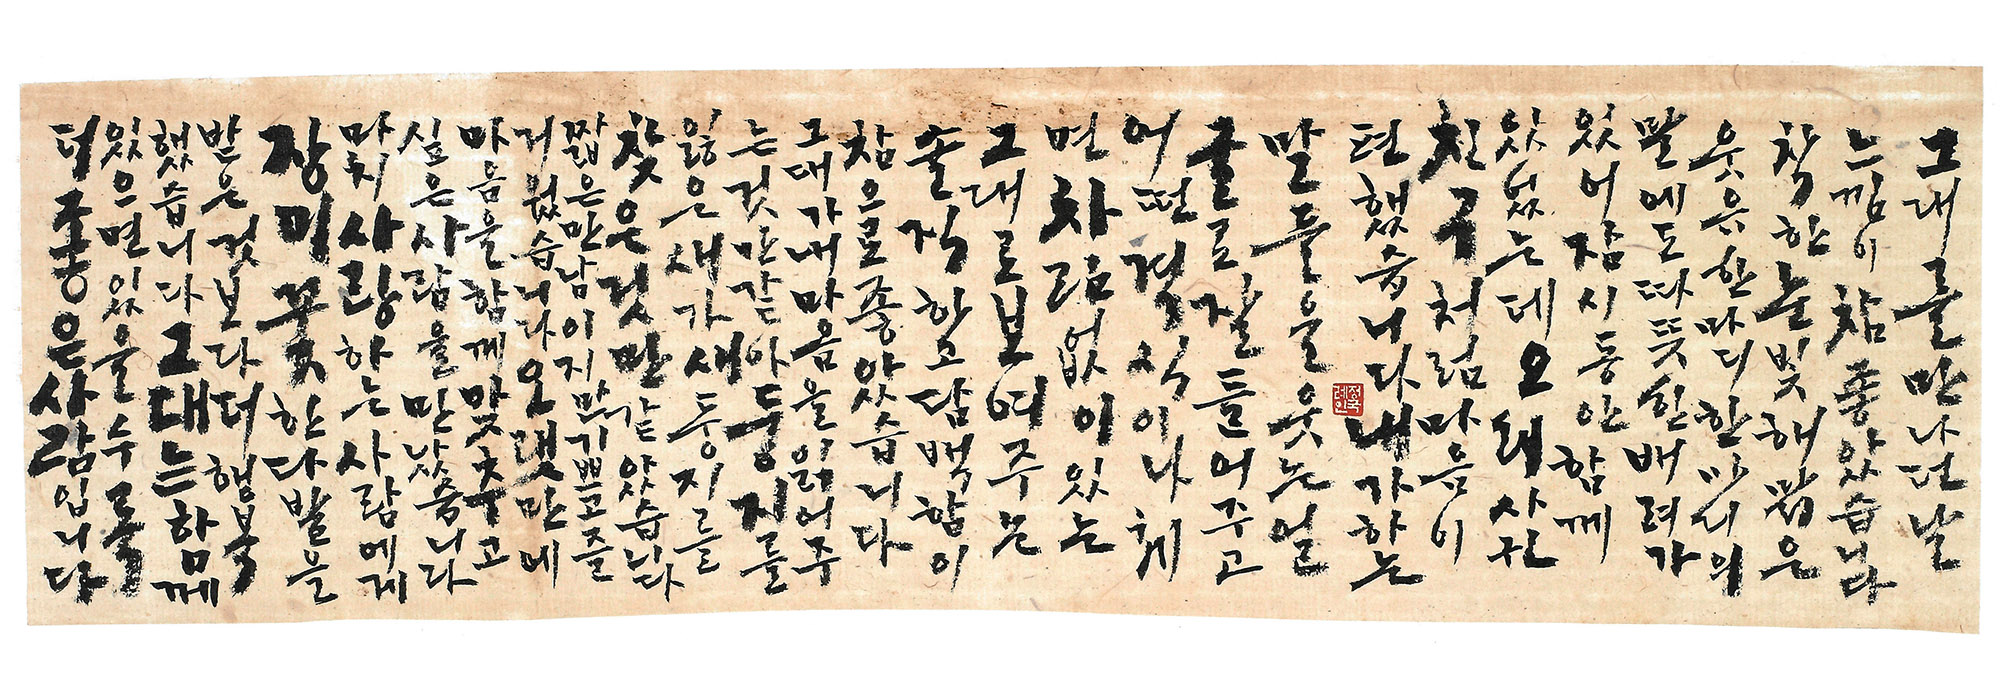 그대를 만나던 날
느낌이 참 좋았습니다
착한 눈빛 해맑은
웃음 한마디 한마디의
말에도 따뜻한 배려가
있어 잠시동안 함께
있었는데 오래 사귄
친구처럼 마음이
편했습니다 내가 하는
말들을 웃는 얼
굴로 잘 들어주고
어떤 격식이나 체
면 차림없이 있는
그대로 보여주는
솔직하고 담백함이
참으로 좋았습니다
그대가 내마음을 읽어주
는 것만 같아 둥지를
잃은 새가 새 둥지를
찾은 것만 같았습니다
짧은 만남이지만 기쁘고 즐
거웠습니다 오랫만에
마음을 함께 맞추고
싶은 사람을 만났습니다
마치 사랑하는 사람에게
장미꽃 한 다발을
받은 것보다 더 행복
했습니다 그대는 함께
있으면 있을수록
더 좋은 사람입니다